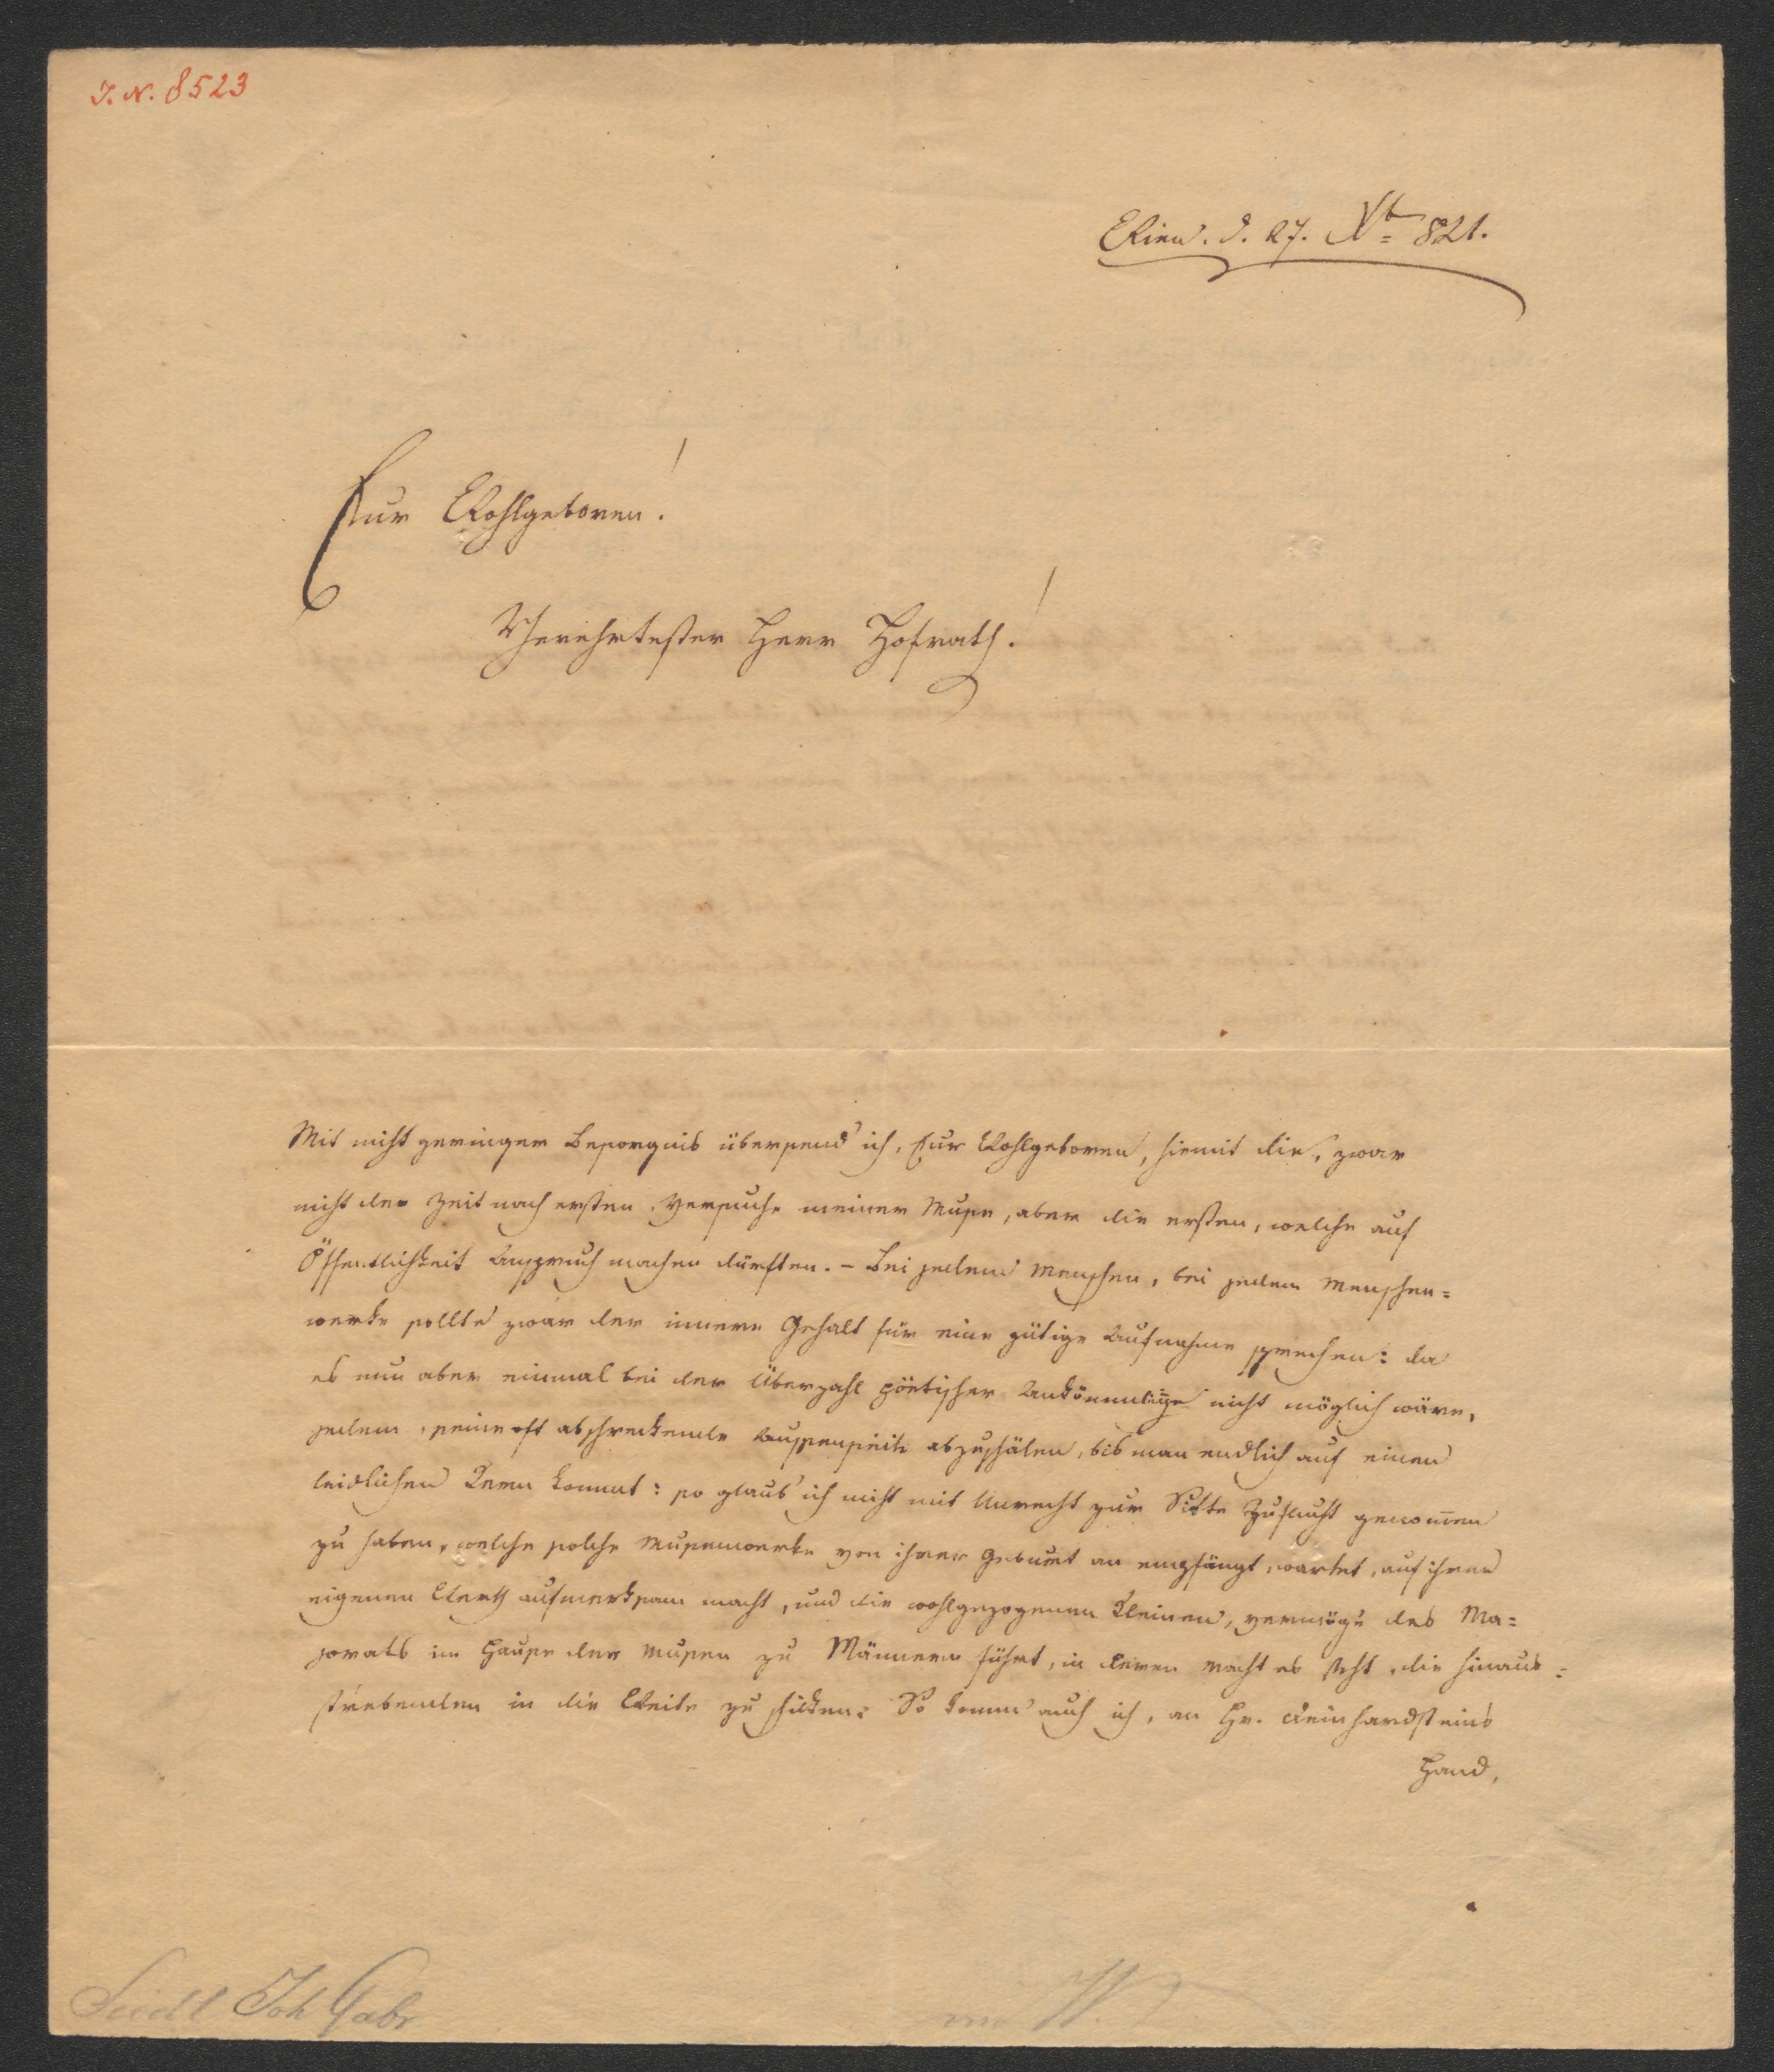 J. N. 8523
Wien. d. 27. Xb= 821.
Eur Wohlgeboren!
Verehrtester Herr Hofrath!
Mit nicht geringer Besorgnis übersend' ich, Eur Wohlgeboren, hiemit die, zwar
nicht der Zeit nach ersten, Versuche meiner Muse, aber die ersten, welche auf
Öffentlichkeit Anspruch machen dürften. – Bei jedem Menschen, bei jedem Menschen=
werke sollte zwar der innere Gehalt für eine gütige Aufnahme sprechen: da
es nun aber einmal bei der Überzahl pöetischer Ankömmlinge nicht möglich wäre,
jedem, seine oft abschreckende Aussenseite abzuschälen, bis man endlich auf einen
leidlichen Kern kommt: so glaub' ich nicht mit Unrecht zur Sitte Zuflucht genom̄en
zu haben, welche solche Musenwerke von ihrer Geburt an empfängt, wartet, auf ihren
eigenen Werth aufmerksam macht, und die wohlgezogenen Kleinen, vermöge des Ma=
jorats im Hause der Musen zu Männern führt, in deren Macht es steht, die hinaus=
strebenden in die Weite zu schicken: So komm' auch ich, an Hr. Deinhardsteins
Hand,
Seidl Joh Gabr